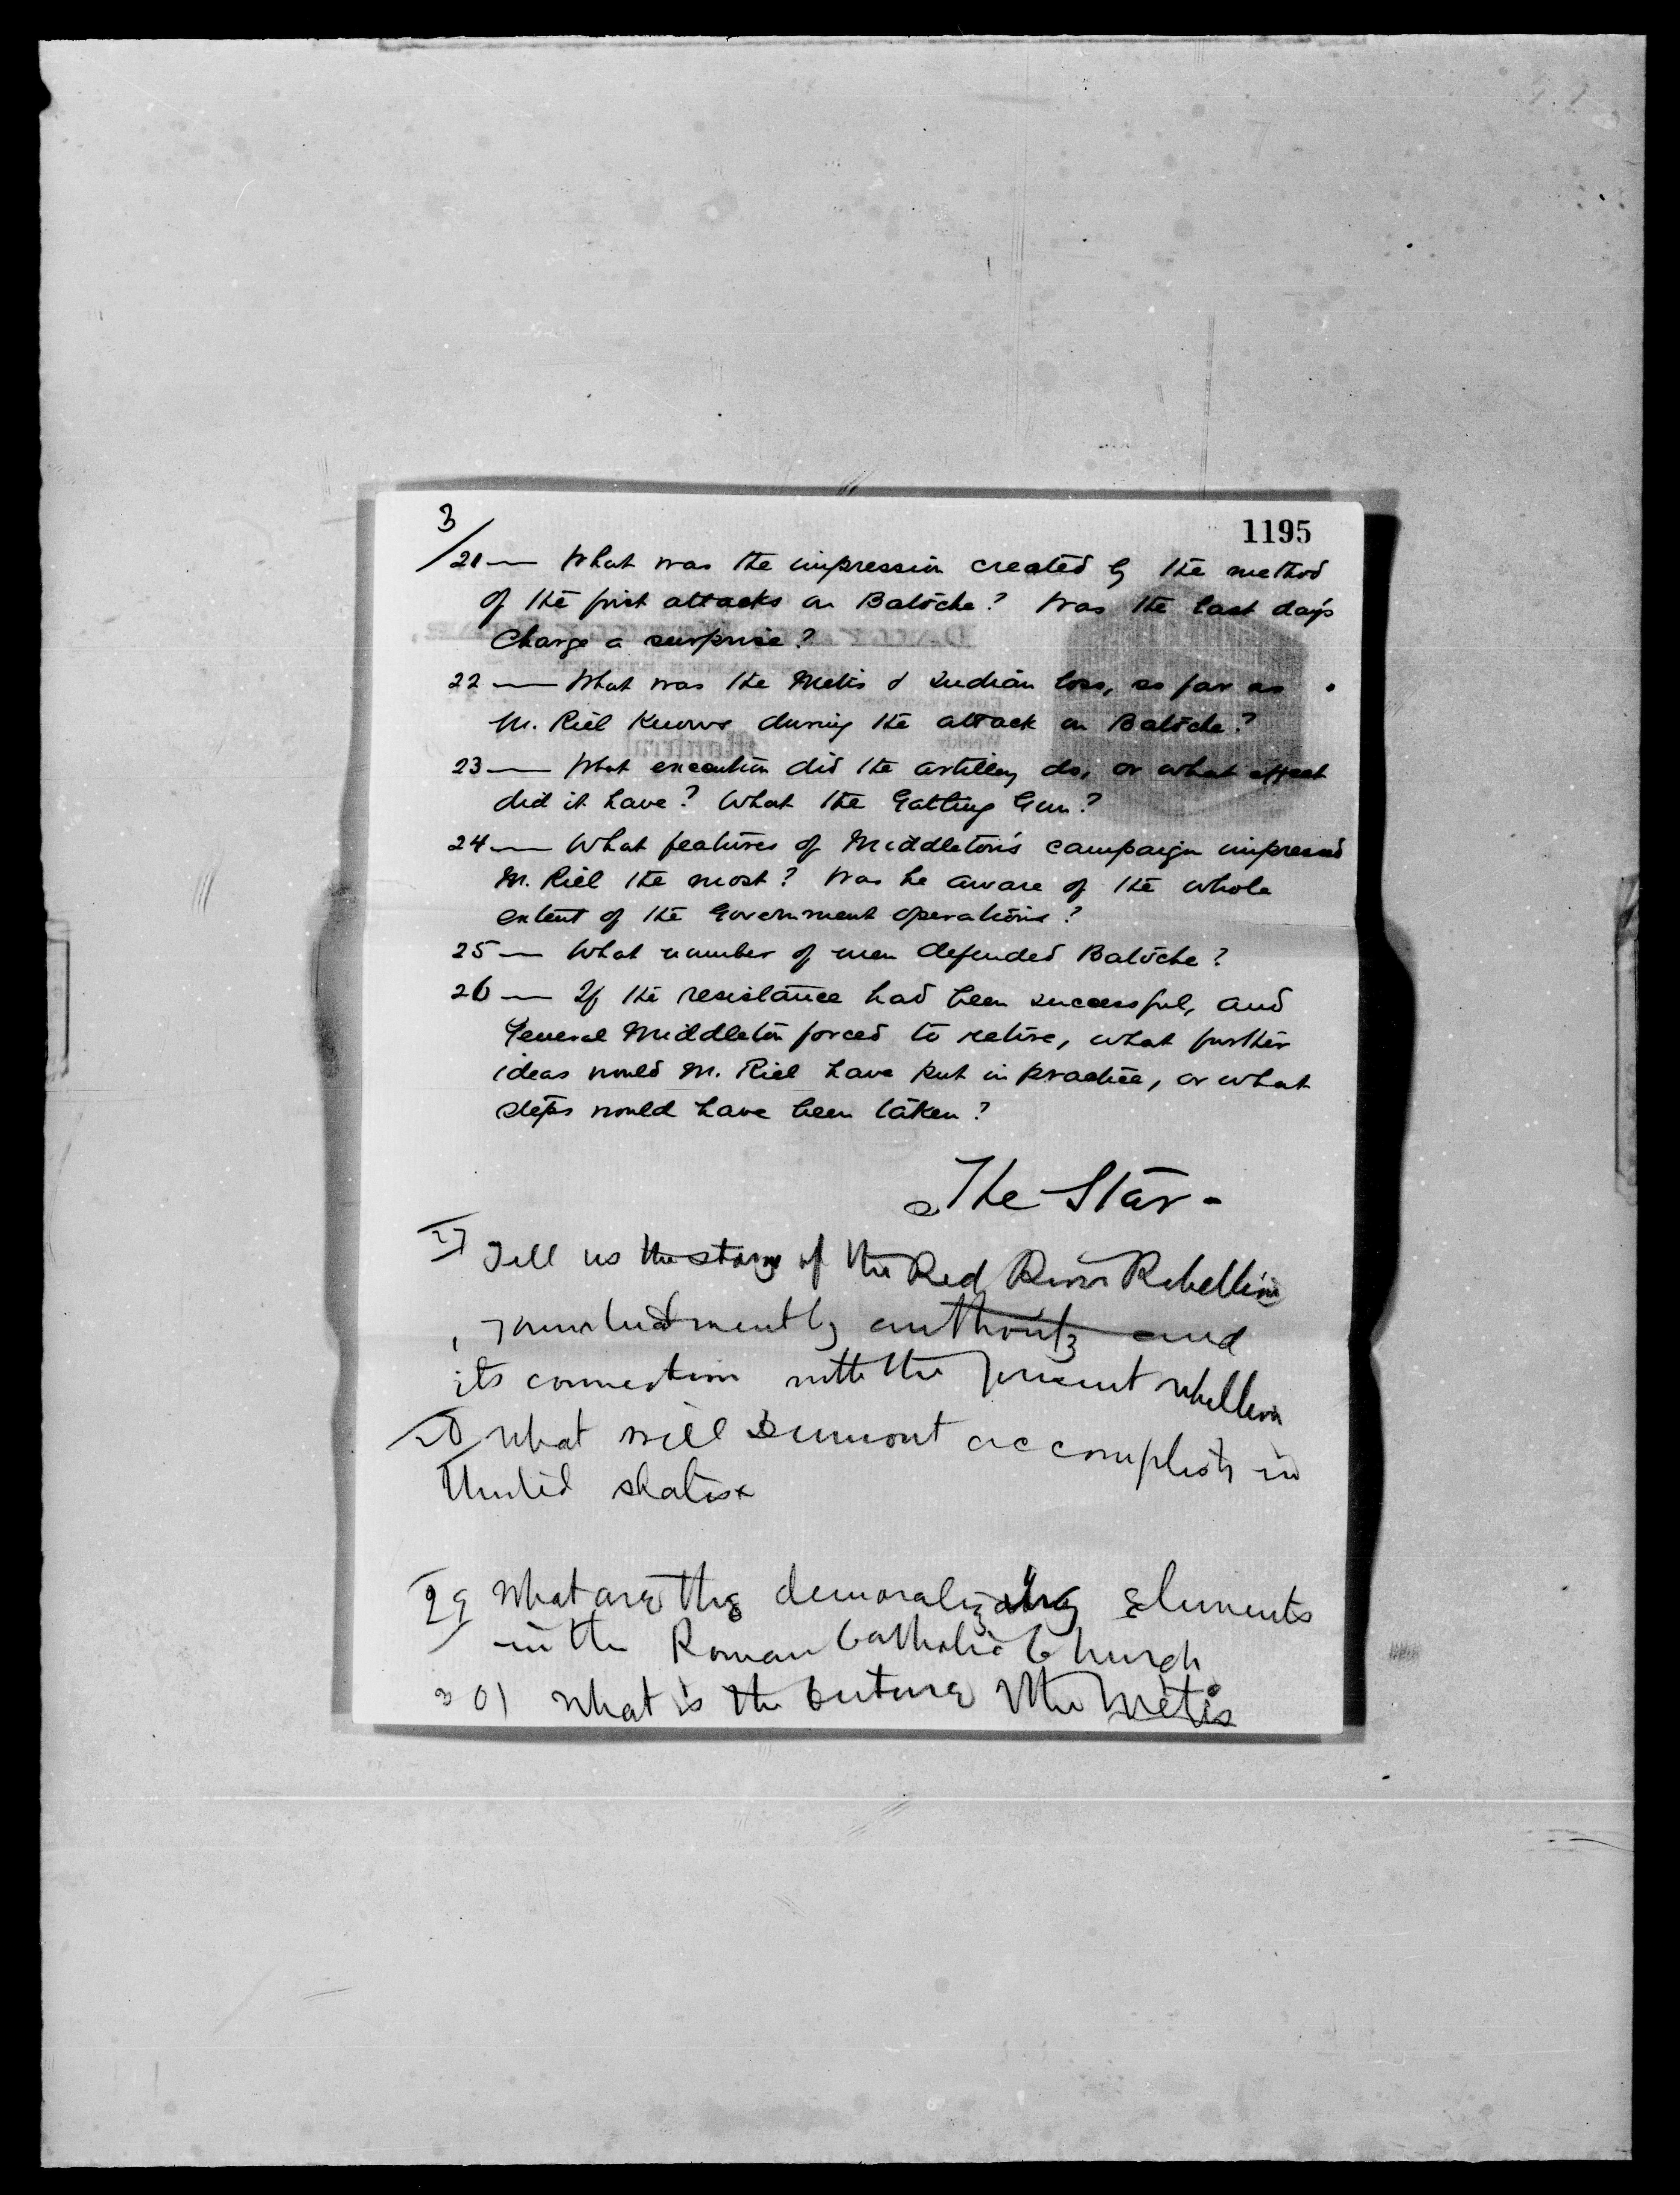 3
1195
21 — What was the impression created by the method
of the first attacks on Batoche? Was the last day's
Charge a surprise?
22 — What was the Metis & Indian loss, so far as
M. Riel Knows during the attack on Batoche?
23 — What execution did the artillery do, or what effect
did it have? What the Gatling Gun?
24 — What features of Middleton's campaign impressed
M. Riel the most? Was he aware of the whole
extent of the Government operations?
25 — What number of men defended Batoche?
26 — If the resistance had been successful, and
General Middleton forced to retire, what further
ideas would M. Riel have put in practice, or what
steps would have been taken?
The Star -
27 Tell us the story of the Red River Rebellion
authority and
its connection with the present rebellion
28 What will Dumont accomplish in
United States
29 What are the demoralizing Elements
in the Roman Catholic Church
30) What is the future the Metis